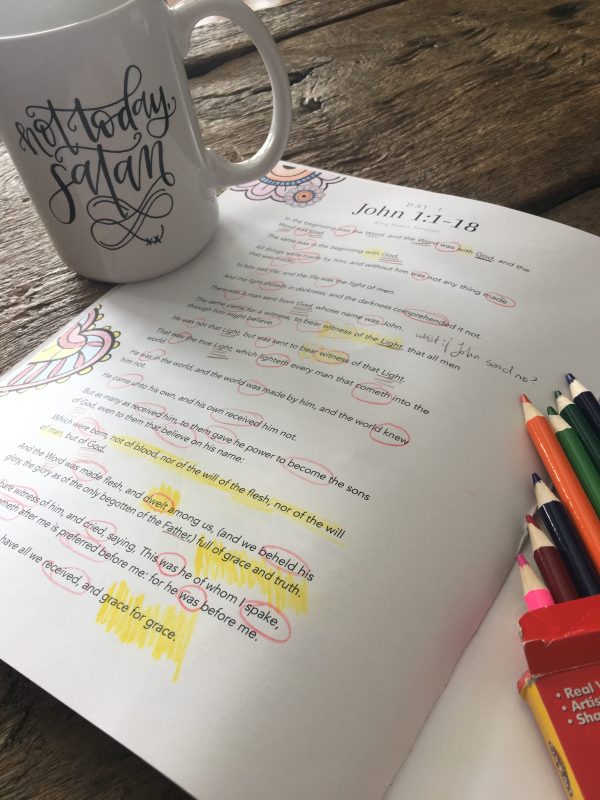 not today
satan
DAY 1
John 1:1-18
king james version
In the beginning was the Word, and the Word was with God, and the
Word was God.
The same was in the beginning with God.
All things were made by him; and without him was not any thing made
that was made.
In him was life; and the life was the light of men.
And the light shineth in darkness; and the darkness comprehended it not.
There was a man sent from God, whose name was John.
what if John said no?
The same came for a witness, to bear witness of the Light, that all men
through him might believe.
He was not that Light, but was sent to bear witness of that Light.
That was the true Light, which lighteth every man that cometh into the
world.
He was in the world, and the world was made by him, and the world knew
him not.
He came unto his own, and his own received him not.
But as many as received him, to them gave he power to become the sons
of God even to them that believe on his name:
Which were born, not of blood, nor of the will of the flesh, nor of the will
of man, but of God.
And the Word was made flesh, and dwelt among us, (and we beheld his
glory, the glory as of the only begotten of the Father,) full of grace and truth.
bare witness of him, and cried, saying, This was he of whom I spake,
cometh after me is preferred before me: for he was before me.
have all we received, and grace for grace.
• Real